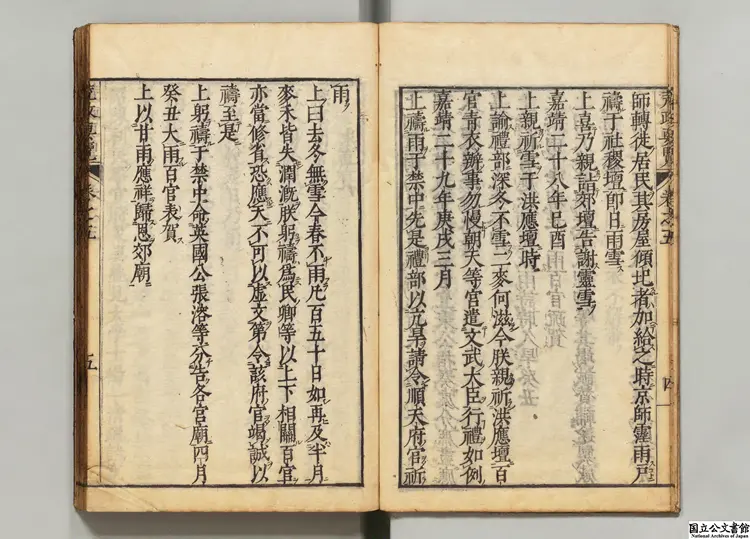 師轉徙居民其房屋傾圯者加給之時京師靈雨
禱于社稷壇卽日雨雪
上喜乃親詣郊壇告謝靈雪
嘉靖二十八年己酉
上親祈雪于洪應壇時
上諭禮部深冬不雪二麥何滋今朕親祈洪應壇百
官青衣辦事勿慢朝天等官遣文武大臣行禮如例
嘉靖二十九年庚戌三月
上禱雨于禁中先是禮部以亢旱請令順天府官祈
四
雨
上曰去冬無雪今春不雨凡百五十日如再及半月
麥禾皆失潤溉朕躬禱爲民卿等以上下相關百官
亦當修省恐應天不可以虛文第令該府官竭誠以
禱至是
上躬禱于禁中命英國公張溶等分告各宮廟四月
癸丑大雨百官表賀
上以甘雨應祥歸恩郊廟
五
国立公文書館
National Archives of Japan